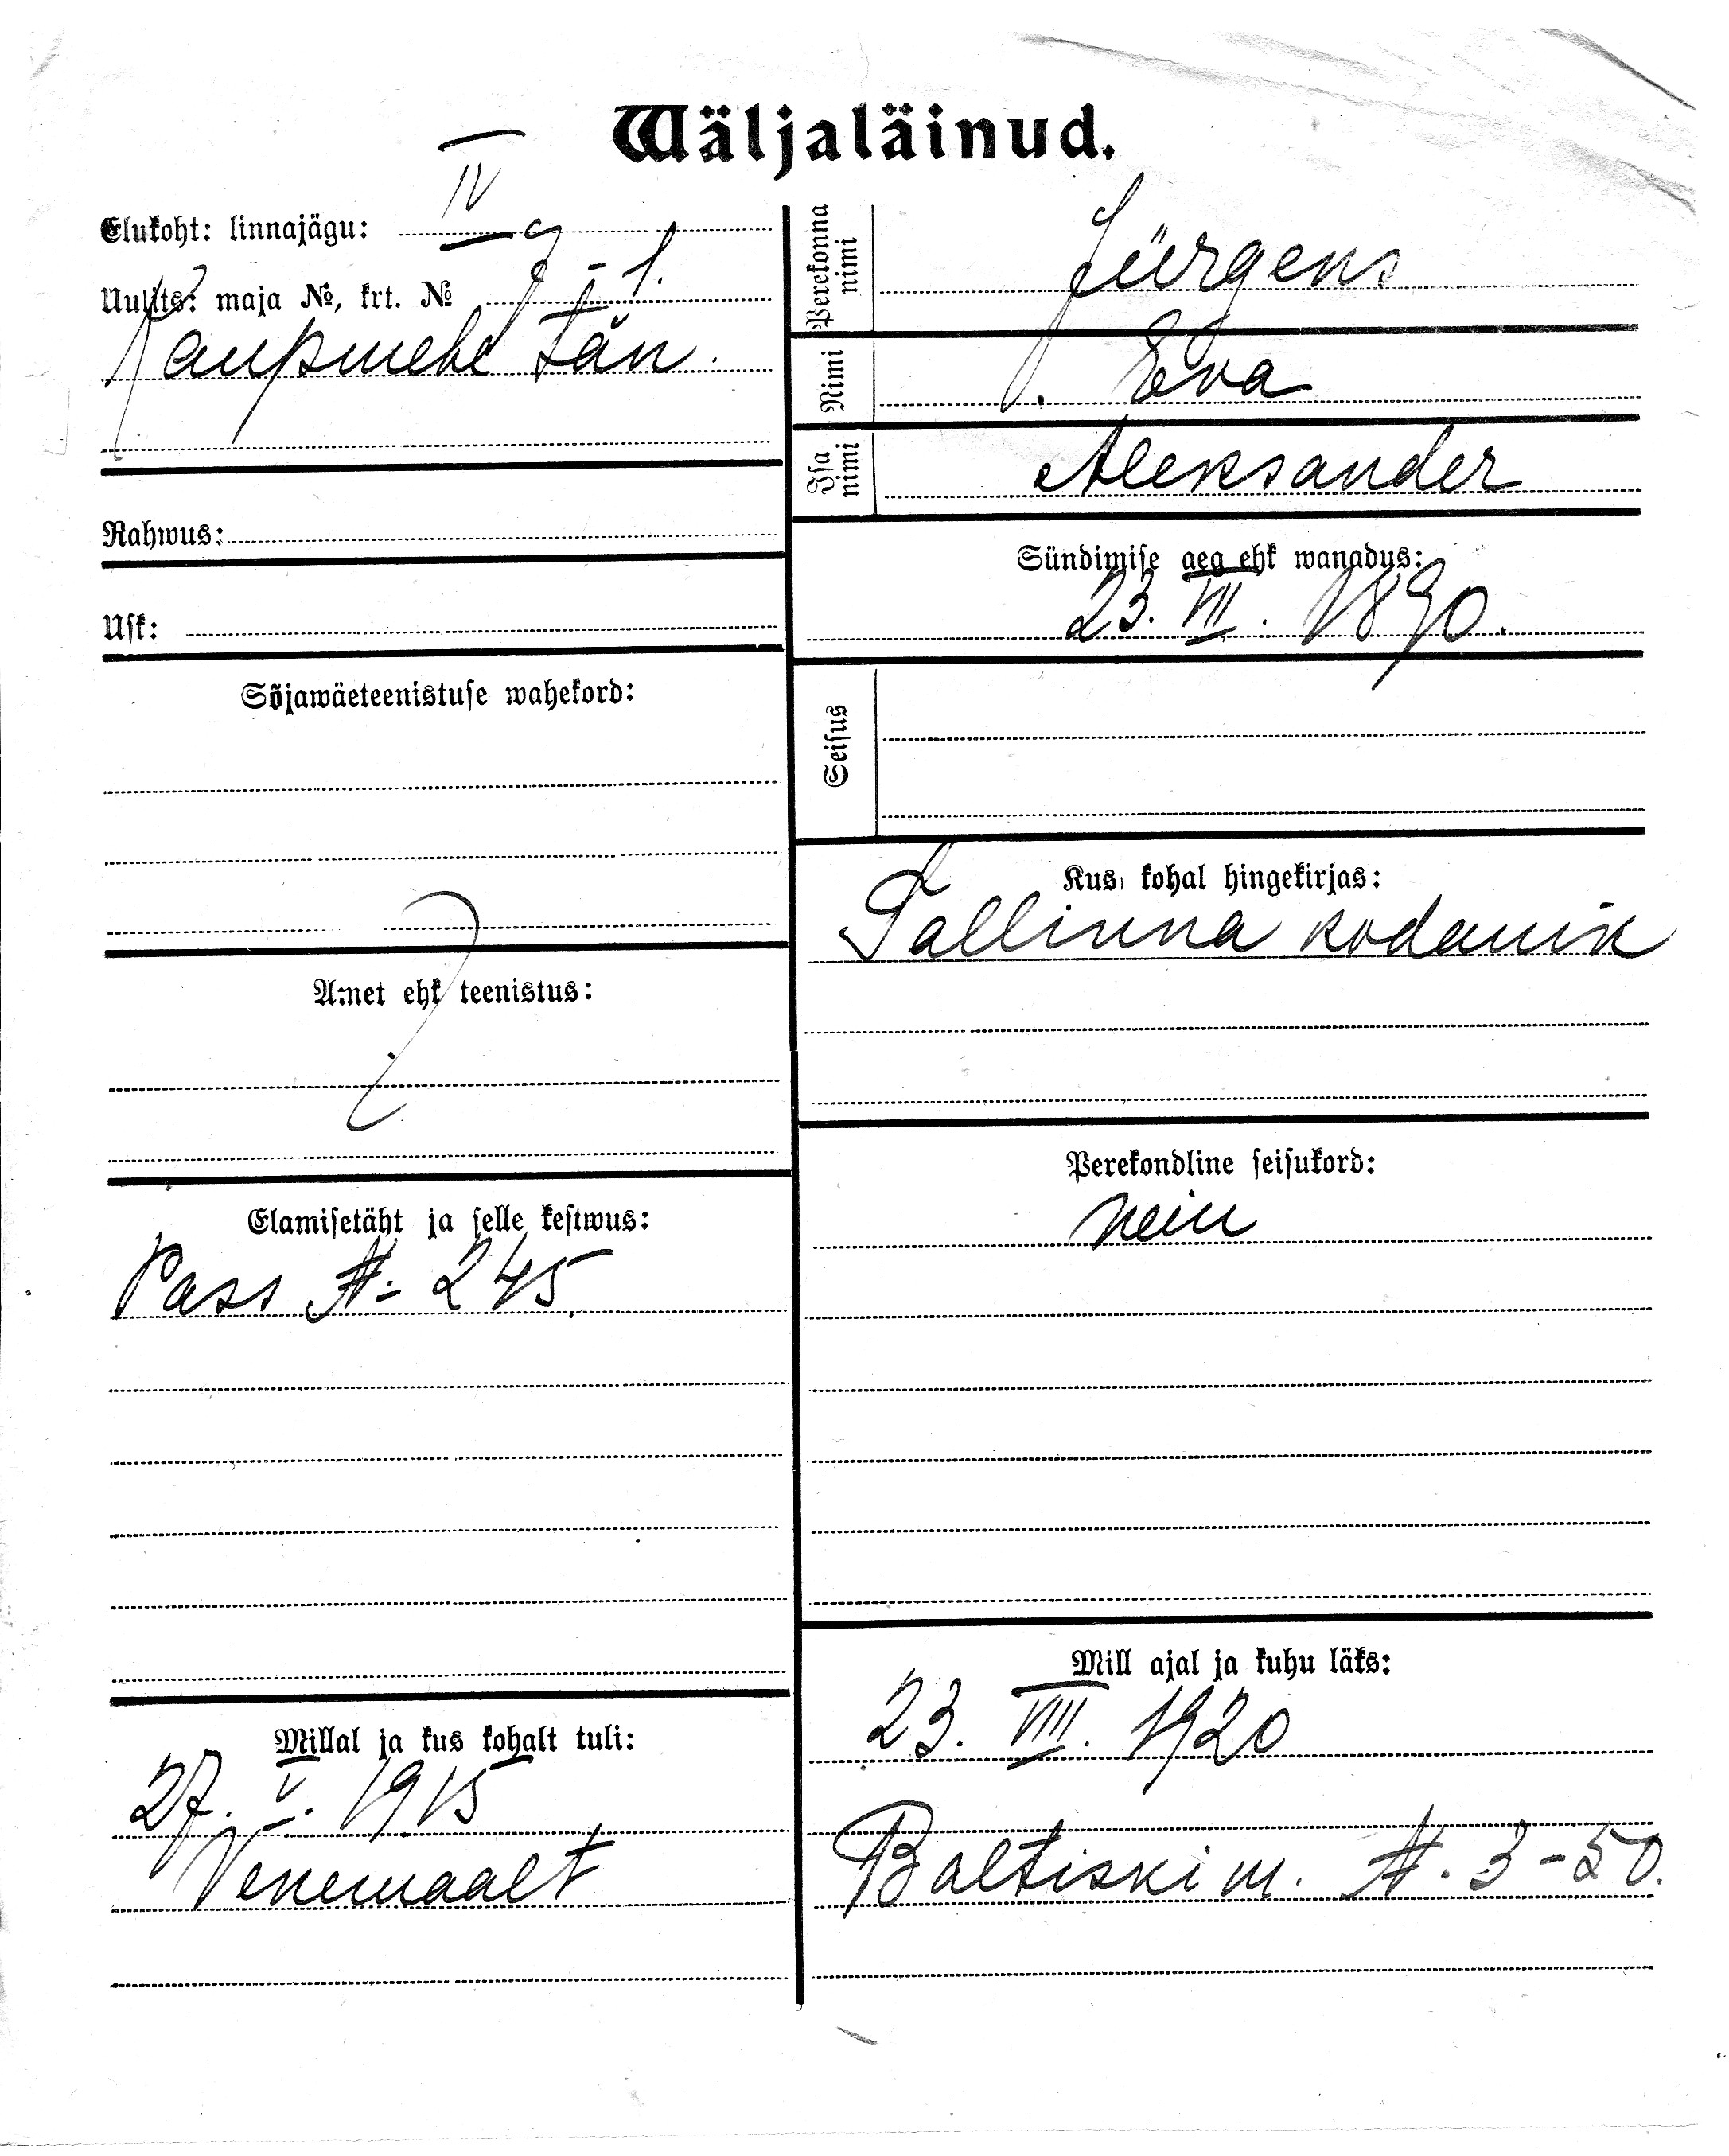 Wäljaläinud.
Elukoht: linnajägu: IV
Uulits: maja №, krt. № 9 - 1.
Kaupmehe tän.
Rahwus:
Usk:
Sõjawäeteenistuse wahekord:
Amet ehk teenistus:
Elamisetäht ja selle kestwus:
Pass № 245.
Millal ja kus kohalt tuli:
27. V. 1915
Venemaalt
Perekonna nimi Jürgens
Nimi Eva
Isa nimi Aleksander
Sündimise aeg ehk wanadus:
23. VII. 1890.
Seisus
Kus kohal hingekirjas:
Tallinna kodanik
Perekondline seisukord:
neiu
Mill ajal ja kuhu läks:
23. VIII. 1920
Baltiski m. №. 3 - 50.